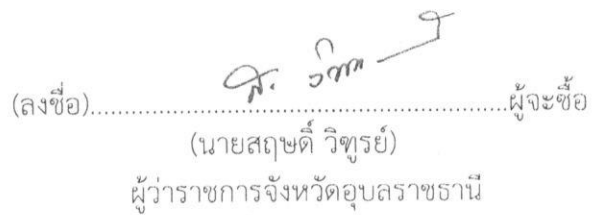 (ลงชื่อ)............................................................ผู้จะซื้อ
(นายสฤษดิ์ วิฑูรย์)
ผู้ว่าราชการจังหวัดอุบลราชธานี